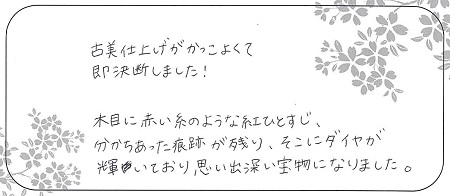 古美仕上げがかっこよくて
即決断しました!
木目に赤い糸のような紅ひとすじ、
分かちあった痕跡が残り、そこにダイヤが
輝いており思い出深い宝物になりました。